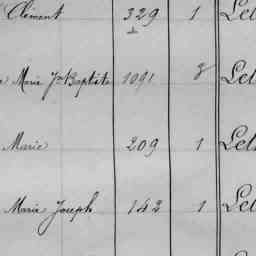 Clément 329 1 Let
Marie Jn Baptiste 1091 8 Let
Marie 209 1 Let
Marie Joseph 142 1 Let